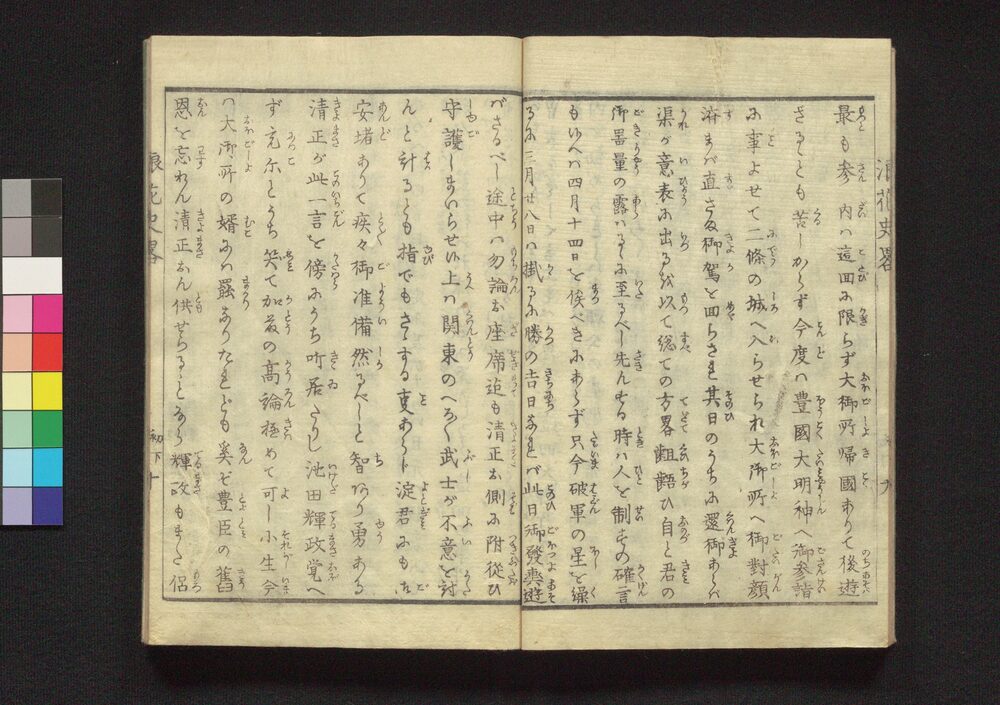 最も参内は這回に限らず大御所帰國ありて後遊
さるとも苦しからず今度は豊國大明神へ御参詣
に事よせて二條の城へ入らせられ大御所へ御對顔
済まば直さま御駕を回らされ其日のうちに還御あらば
渠が意表に出るを以て總ての方畧齟齬ひ自と君の
御器量の露はるゝに至るべし先んずる時は人を制すの確言
もあへば四月十四日を俟べきにあらず只今破軍の星を繰
るに三月廿八日は掛るに勝の吉日なれば此日御發輿遊
ばさるべし途中は勿論お座席迄も清正お側に附從ひ
守護しまいらせ上は関東のへろ〱武士が不意を討
んと計るとも指でもさゝする事あらじ淀君にもお
安堵ありて疾々御准備然るべしと智あり勇ある
清正が此一言を傍にうち听居たりし池田輝政覚へ
ず莞尓とうち笑て加藤の高論極めて可し小生今
は大御所の婿には羈るたれども奚ぞ豊臣の舊
恩を忘れん清正お供せらるゝとなら輝政もまた侶
浪花史畧
九
浪花史畧
初下
十